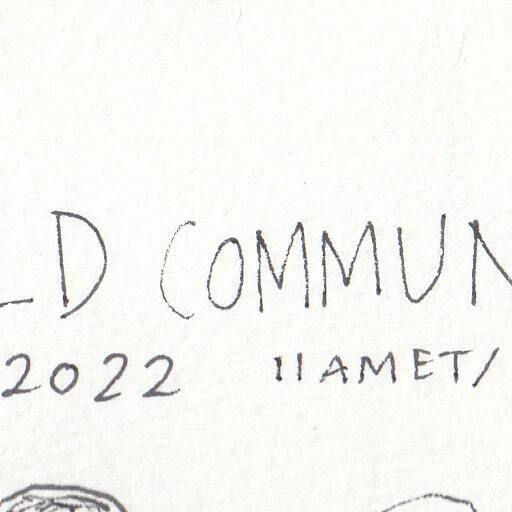 LD COMMUN
2022 11AMET/